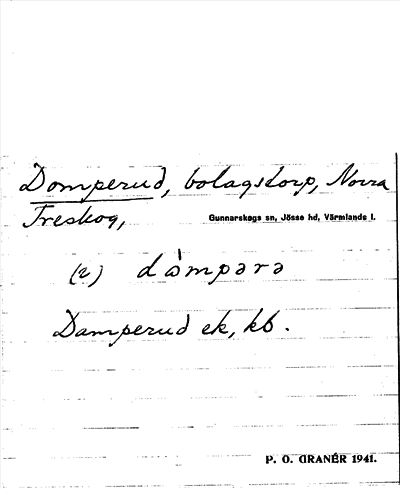 Domperud, bolagstorp, Norra
Treskog, Gunnarskogs sn, Jösse hd, Värmlands l.
(2) dȧmpərə
Damperud ek, kb.
P. O. GRANÉR 1941.